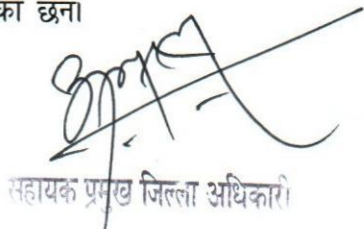 का छन।
सहायक प्रमुख जिल्ला अधिकारी